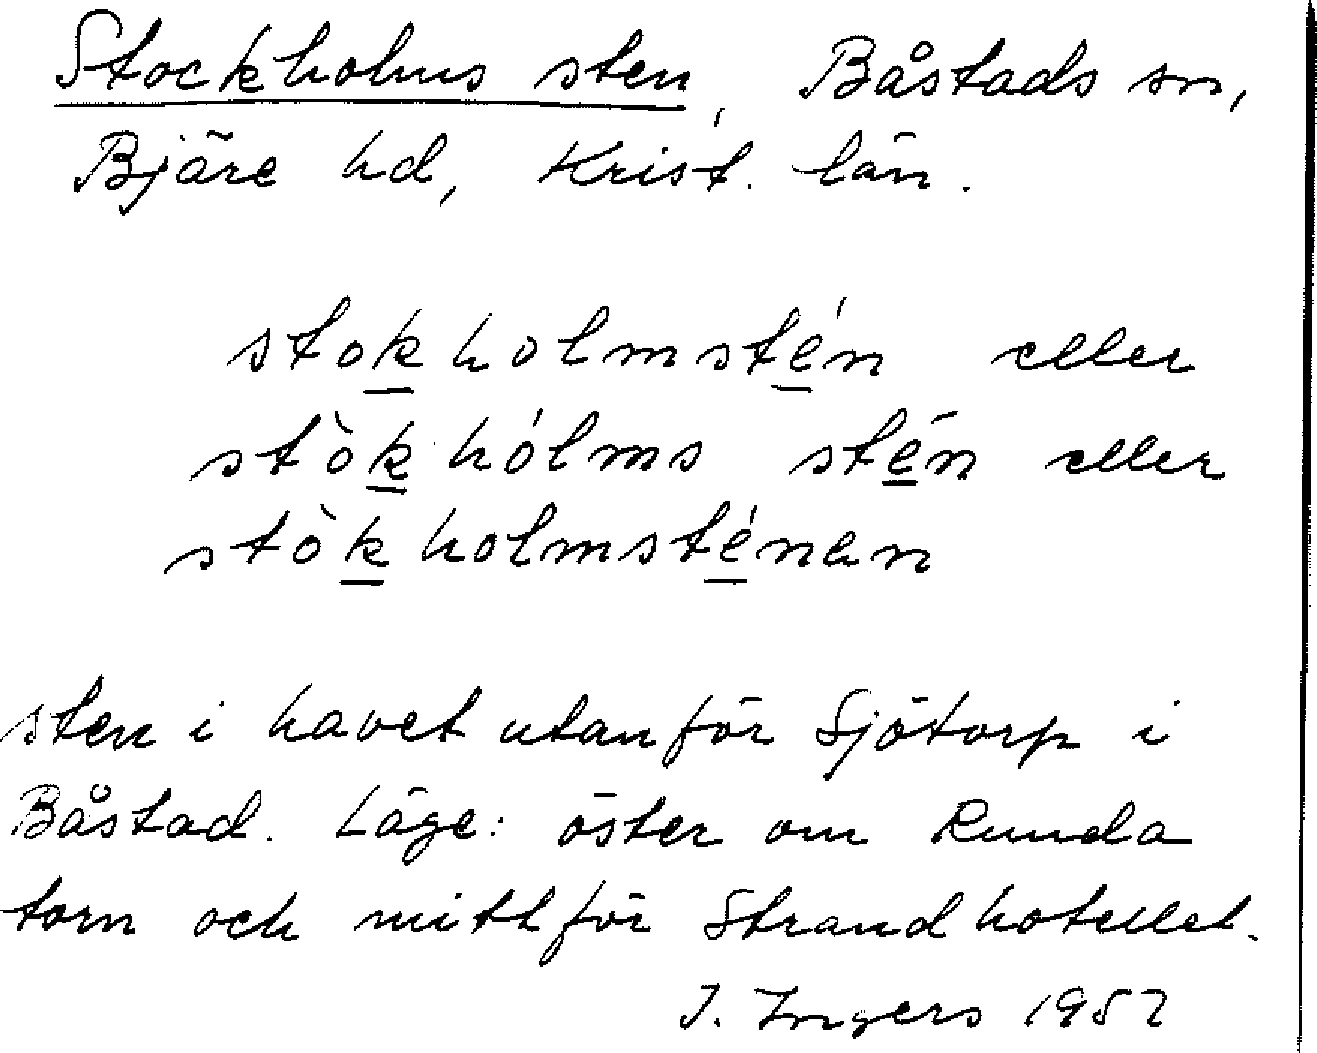 Stockholms sten, Båstads sn,
Bjäre hd, Krist. län.
stokholmstén eller
stòkhólms stén eller
stòkholmsténan
sten i havet utanför Sjötorp i
Båstad. Läge: öster om Runda
torn och mittför Strandhotellet.
I. Ingers 1957